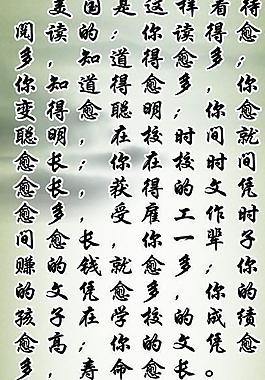 美国是这样看待
阅读的：你读得愈
多，知道得愈多；
你知道得愈多，你
变得愈聪明；你愈
聪明，在校时间就
愈长；你在校时间
愈长，获得的文凭
愈多；受雇工作时
间愈长，你一辈子
赚的钱就愈多；你
的文凭愈多，你的
孩子在学校的成绩
愈高；你的文凭愈
多，寿命愈长。